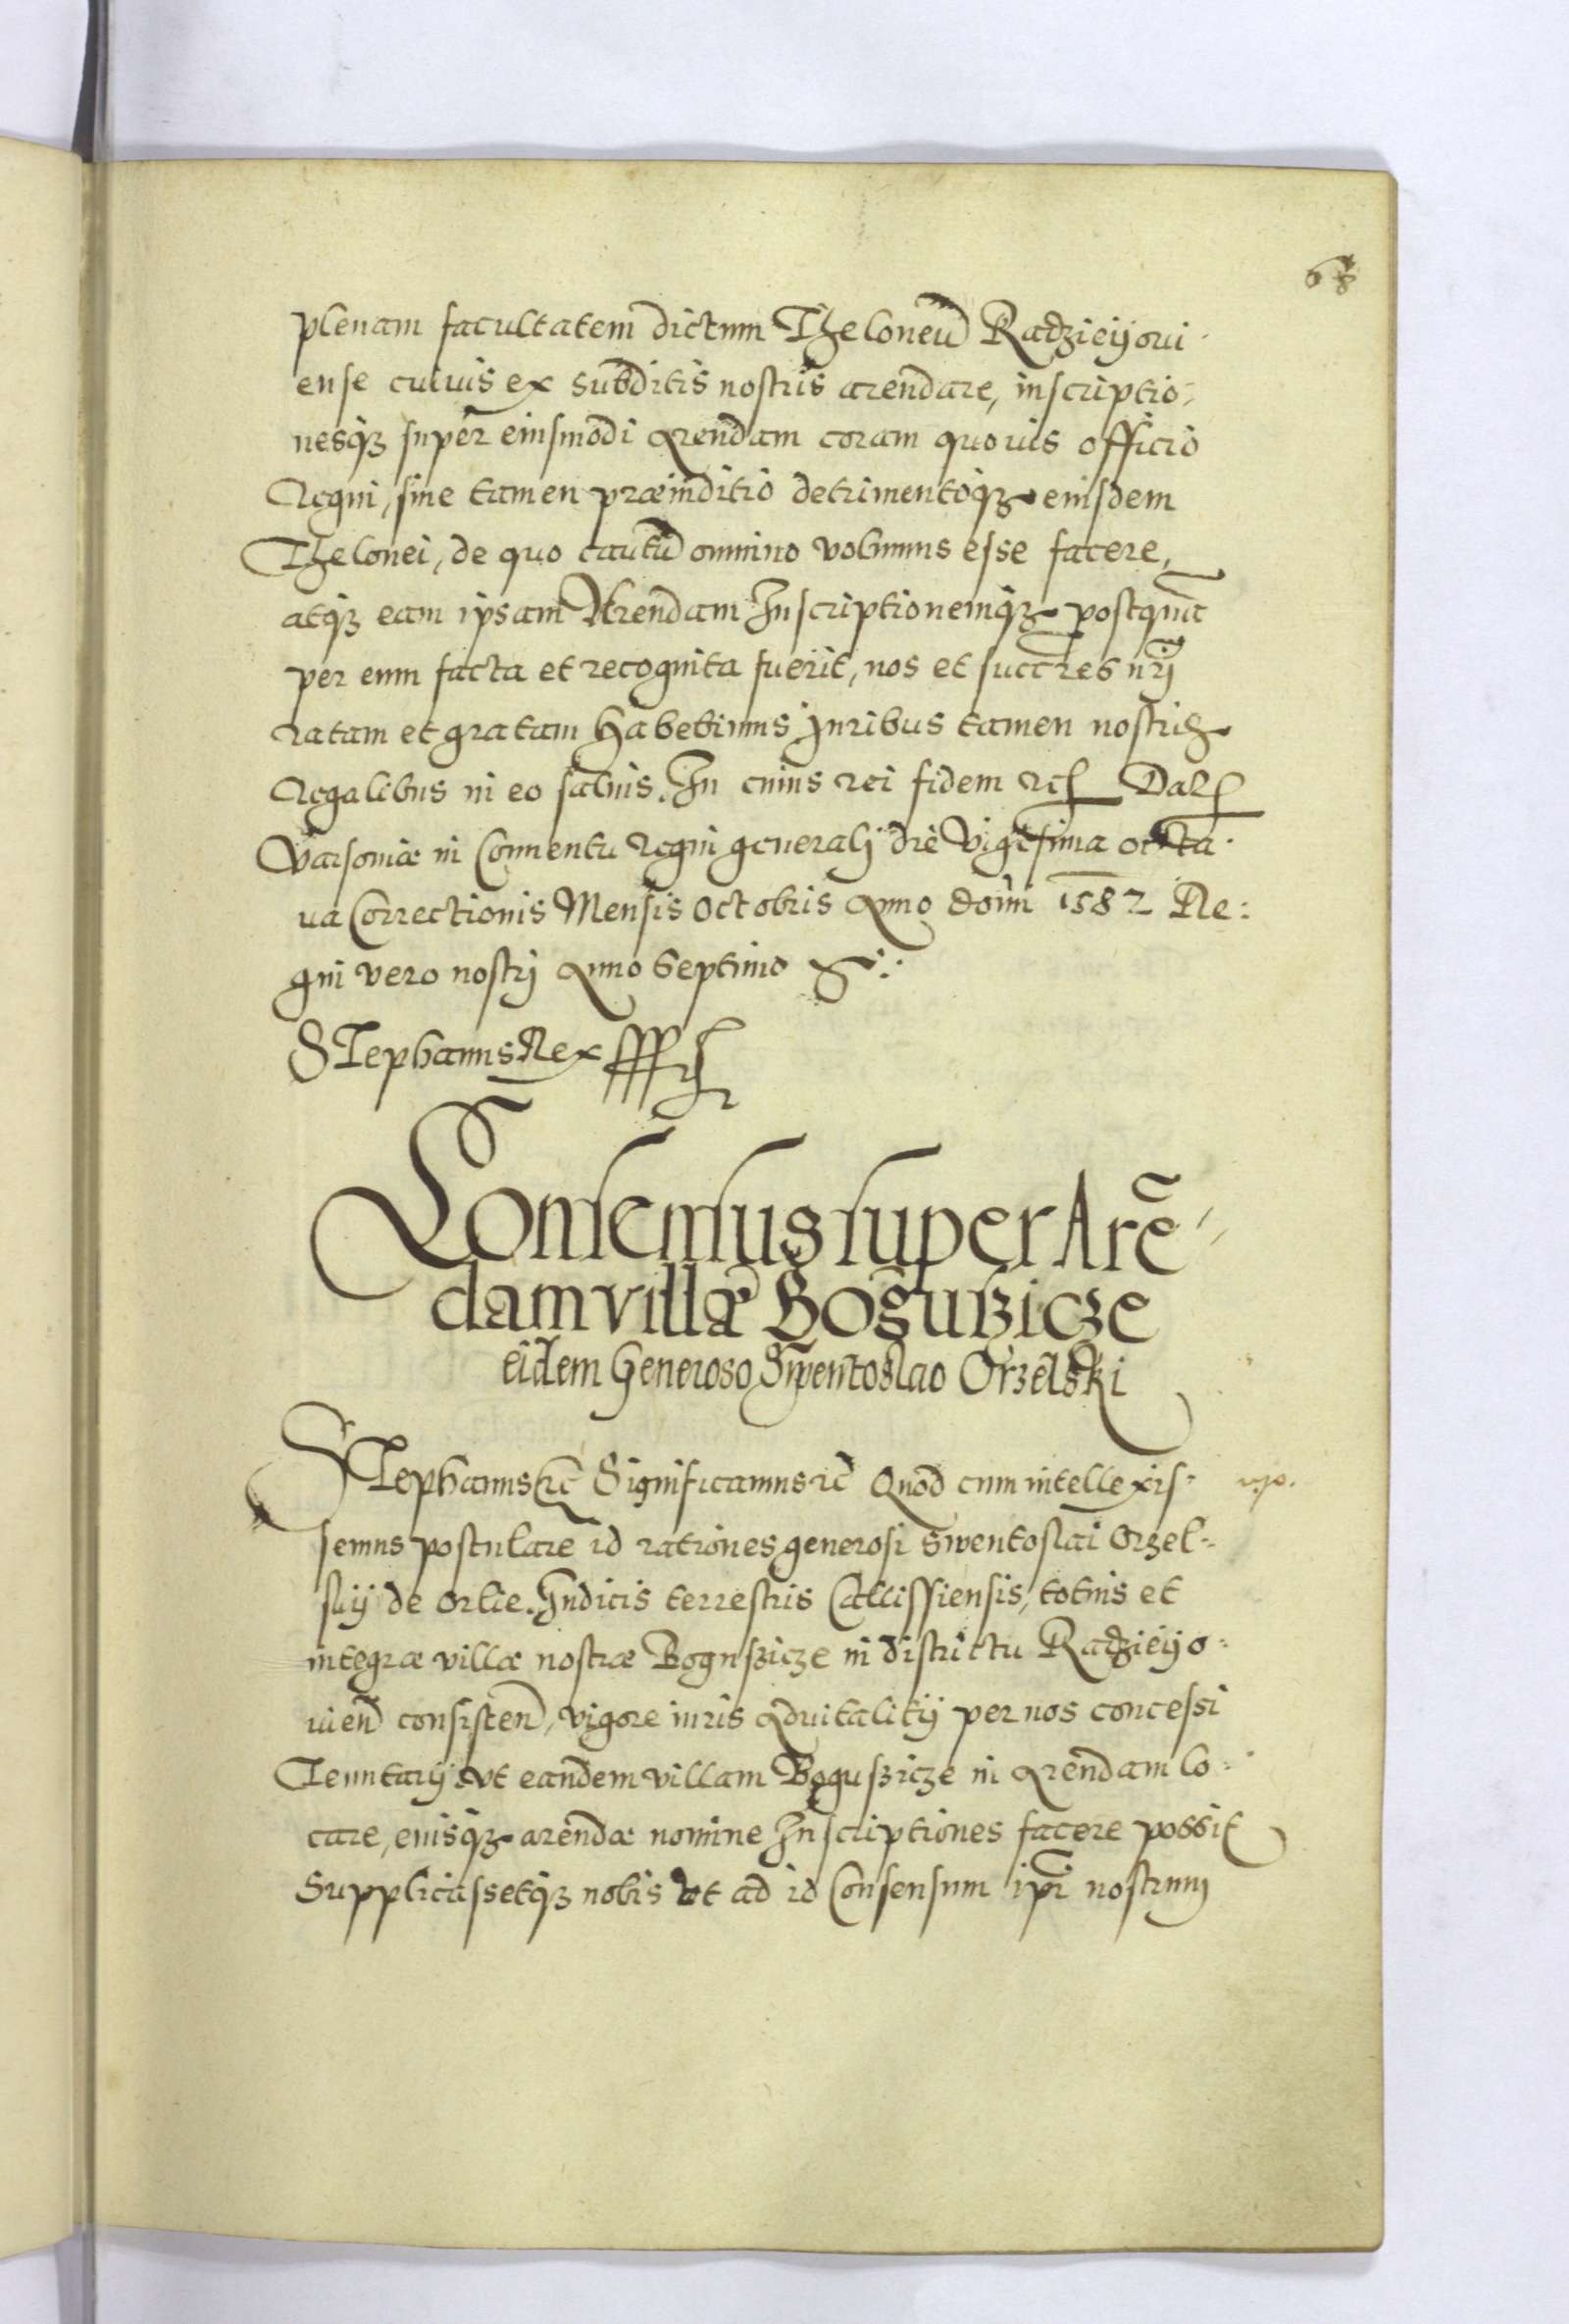 68
plenam facultatem dictum Theloneũ Radzieiioui
ense cuiuis ex subditis nostris arendare, inscriptio-
nesq3 super eiusmodi Arendam coram quouis officio
Regni, sine tamen præiuditio detrimentoq3 eiusdem
Thelonei, de quo cautũ omnino volumus esse facere,
atq3 eam ipsam Arendam Inscriptionemq3 postquã
per eum facta et recognita fuerit, nos et succres nrj
ratam et gratam habebimus Iuribus tamen nostris
Regalibus in eo saluis. In cuius rei fidem etc Dat
Varsouiæ in Conuentu Regni generalj die Vigesima octa
ua Correctionis Mensis Octobris Anno domi 1582 Re:
gni vero nostrj Anno Septimo
Stephanus Rex
Consensus super Arẽ-
dam villæ Boguszicze
eidem Generoso Swentoslao Orzelski
Stephanus etc Significamus etc Quod cum intellexis-
semus postulare id rationes generosi Swentoslai Orzel-
skij de Orlie. Iudicis terrestris Callissiensis, totius et
integræ villæ nostræ Boguszicze in districtu Radzieiio-
uien consisten, vigore iuris Aduitalitij per nos concessi
Tenutarij vt eandem villam Boguszicze in Arendam lo-
care, eiusq3 arendæ nomine Inscriptiones facere possit
Supplicassetq3 nobis vt ad id Consensum ipi nostrum